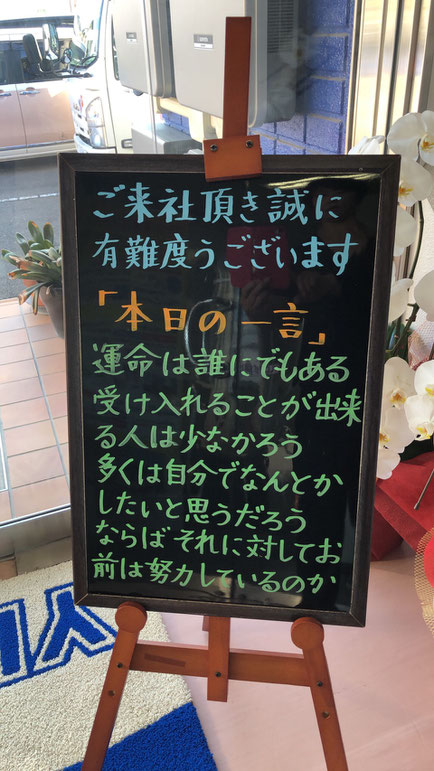 ご来社頂き誠に
有難度うございます
「本日の一言」
運命は誰にでもある
受け入れることが出来
る人は少なかろう
多くは自分でなんとか
したいと思うだろう
ならばそれに対してお
前は努力しているのか